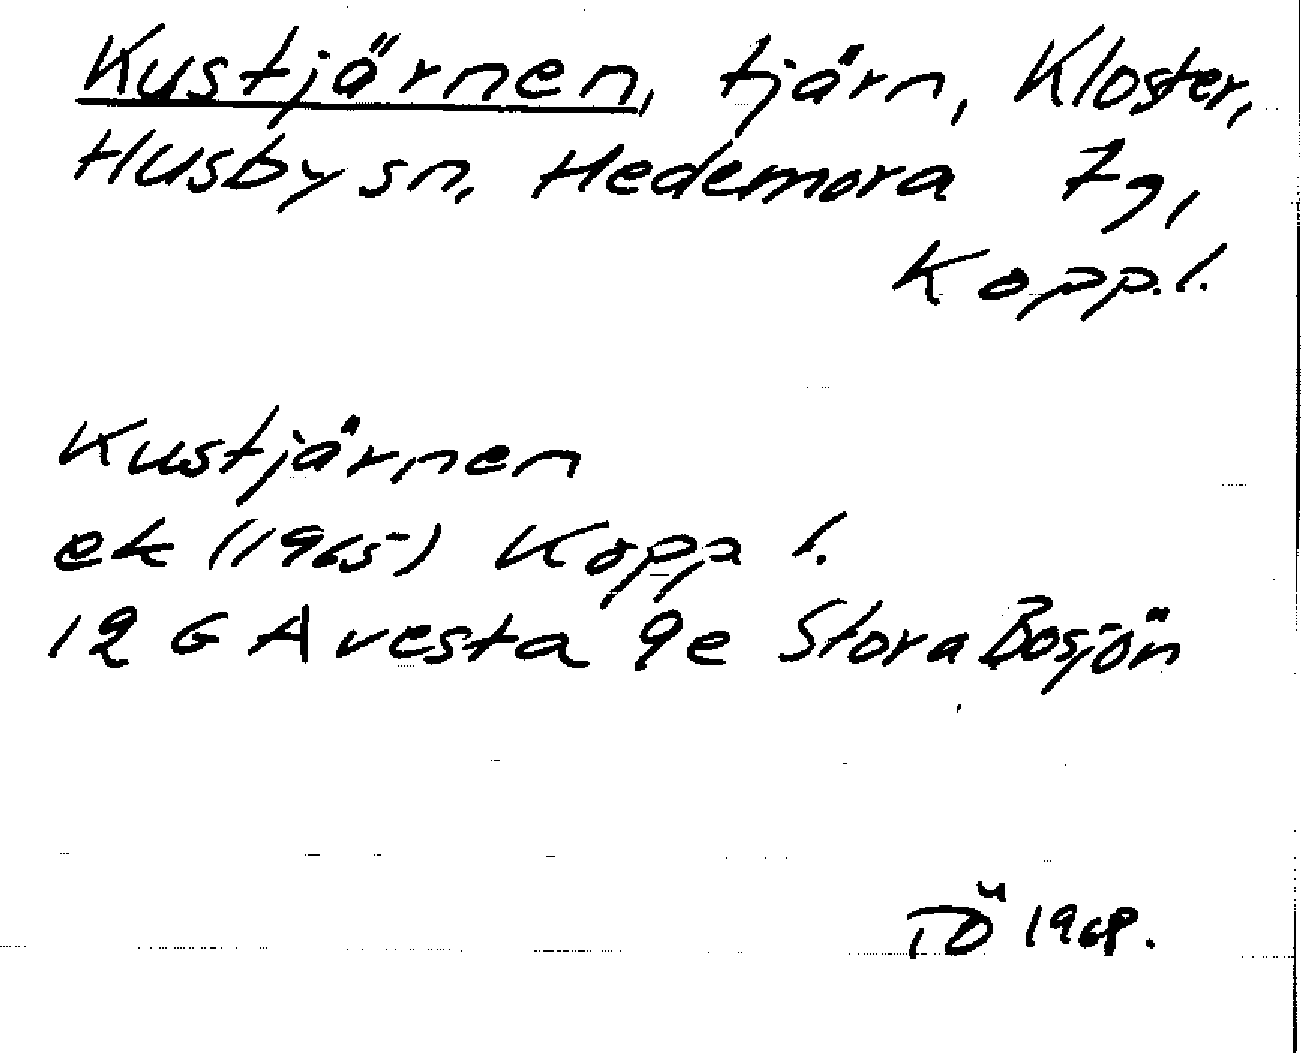 Kustjärnen, tjärn, Kloster,
Husby sn, Hedemora tg,
Kopp. l.
Kustjärnen
ek (1965) Kopp l.
12 G Avesta 9e Stora Bosjön
TÖ 1968.